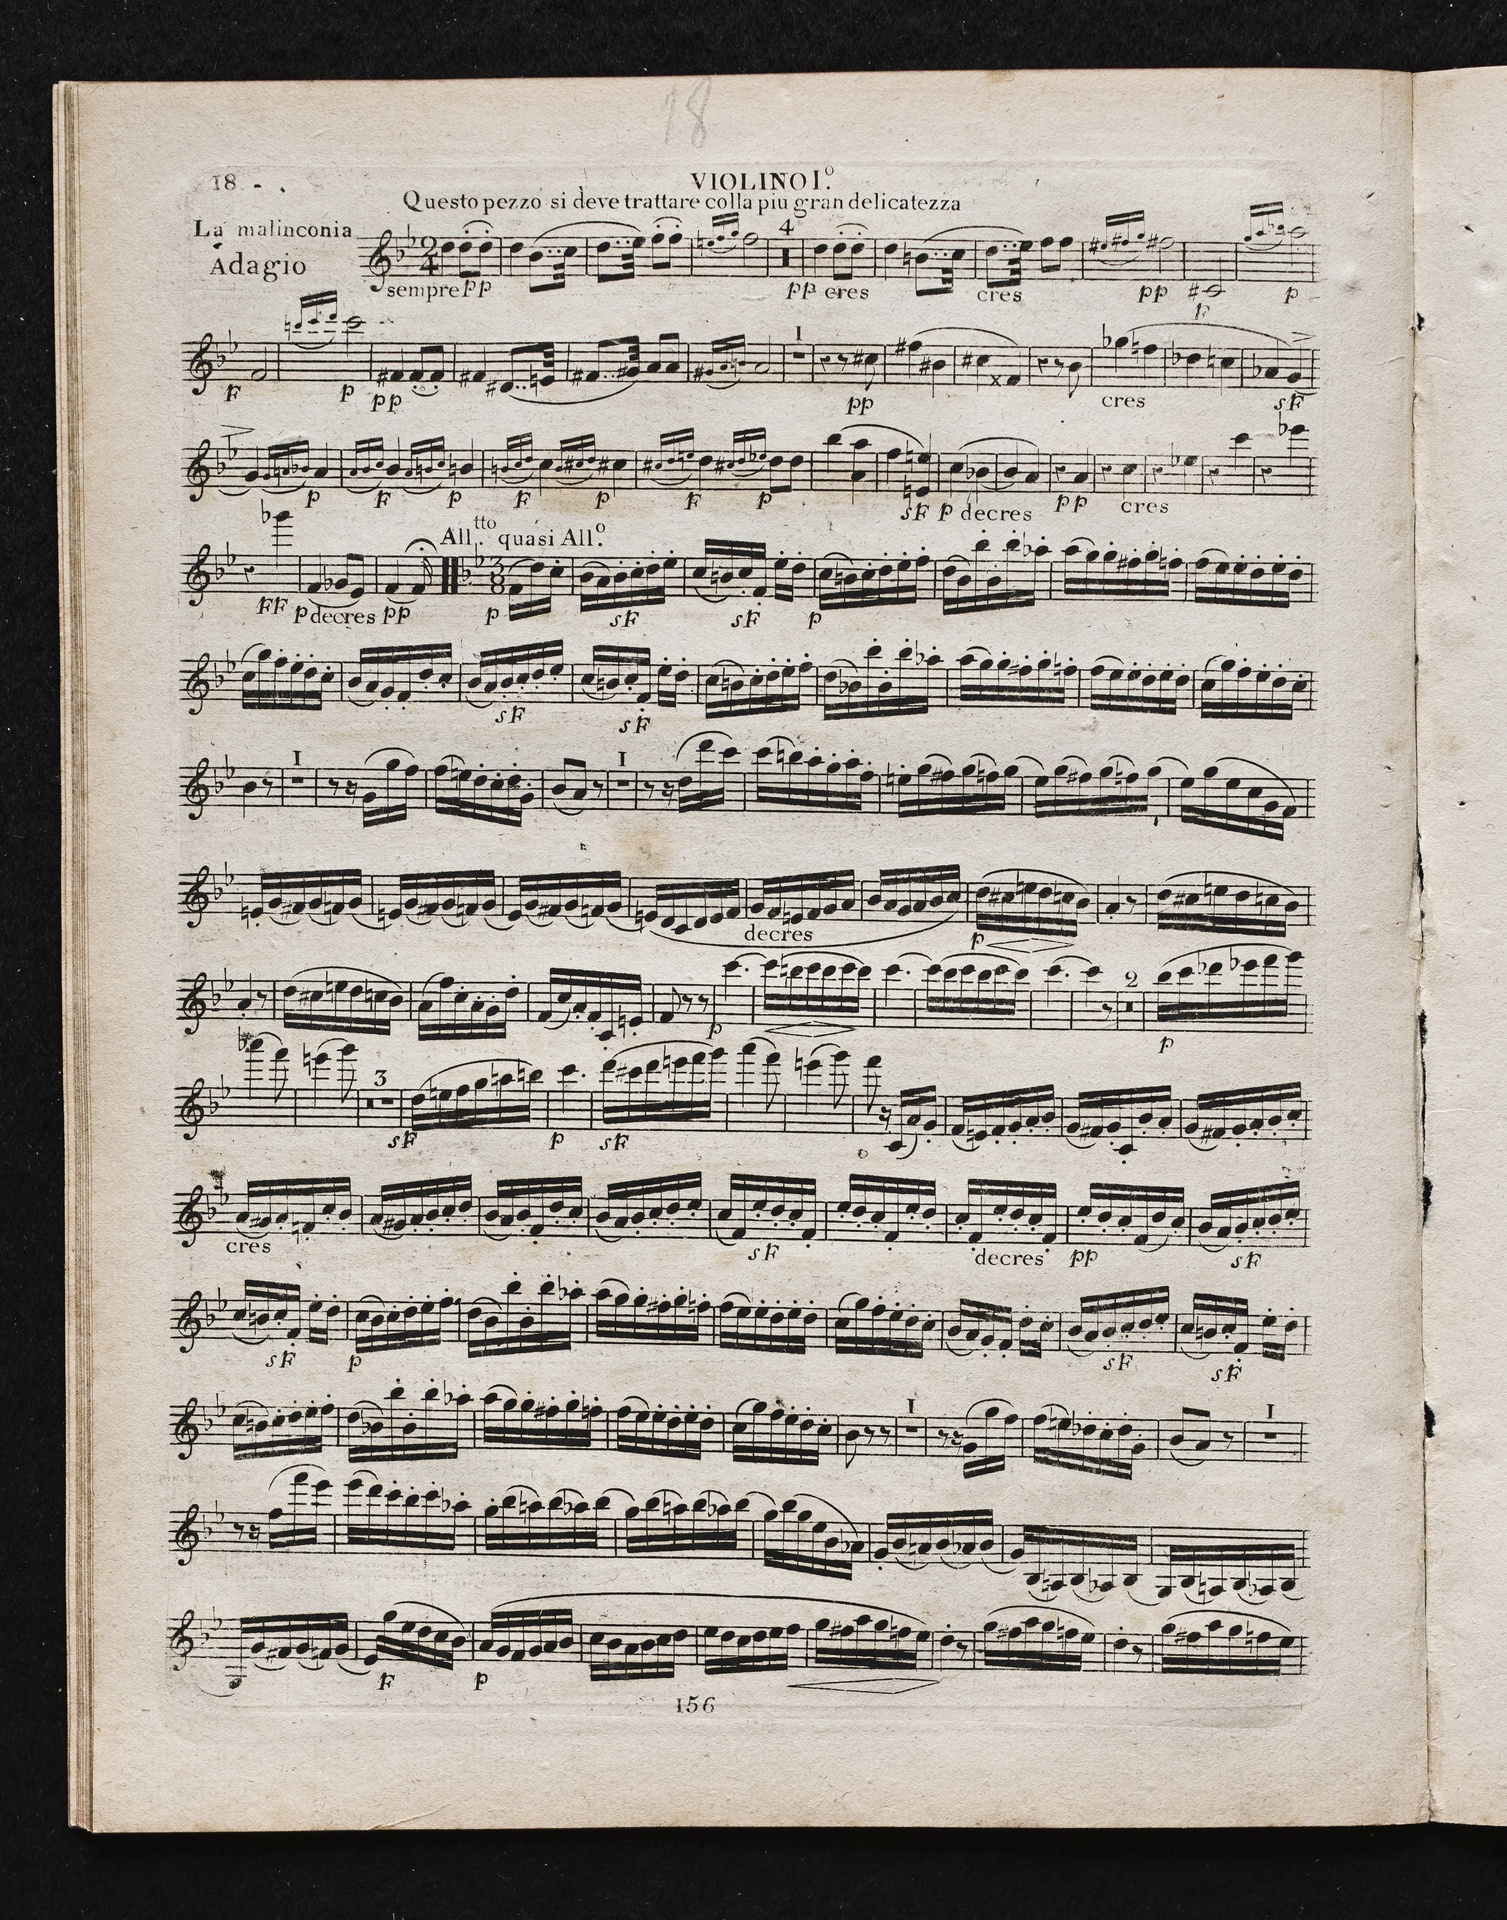 18
18
VIOLINO I.º
Questo pezzo si deve trattare colla piu gran delicatezza
La malinconia
Adagio
4
sempre pp
pp cres
cres
pp
F
p
1
F
p
pp
pp
cres
sF
p
F
p
F
p
F
p
sF p decres
pp
cres
All.tto quasi All.º
FF p decres pp
p
sF
sF
p
sF
sF
1
1
decres
p
2
p
p
3
sF
p
sF
cres
sF
decres
pp
sF
sF
p
sF
sF
1
1
F
p
156